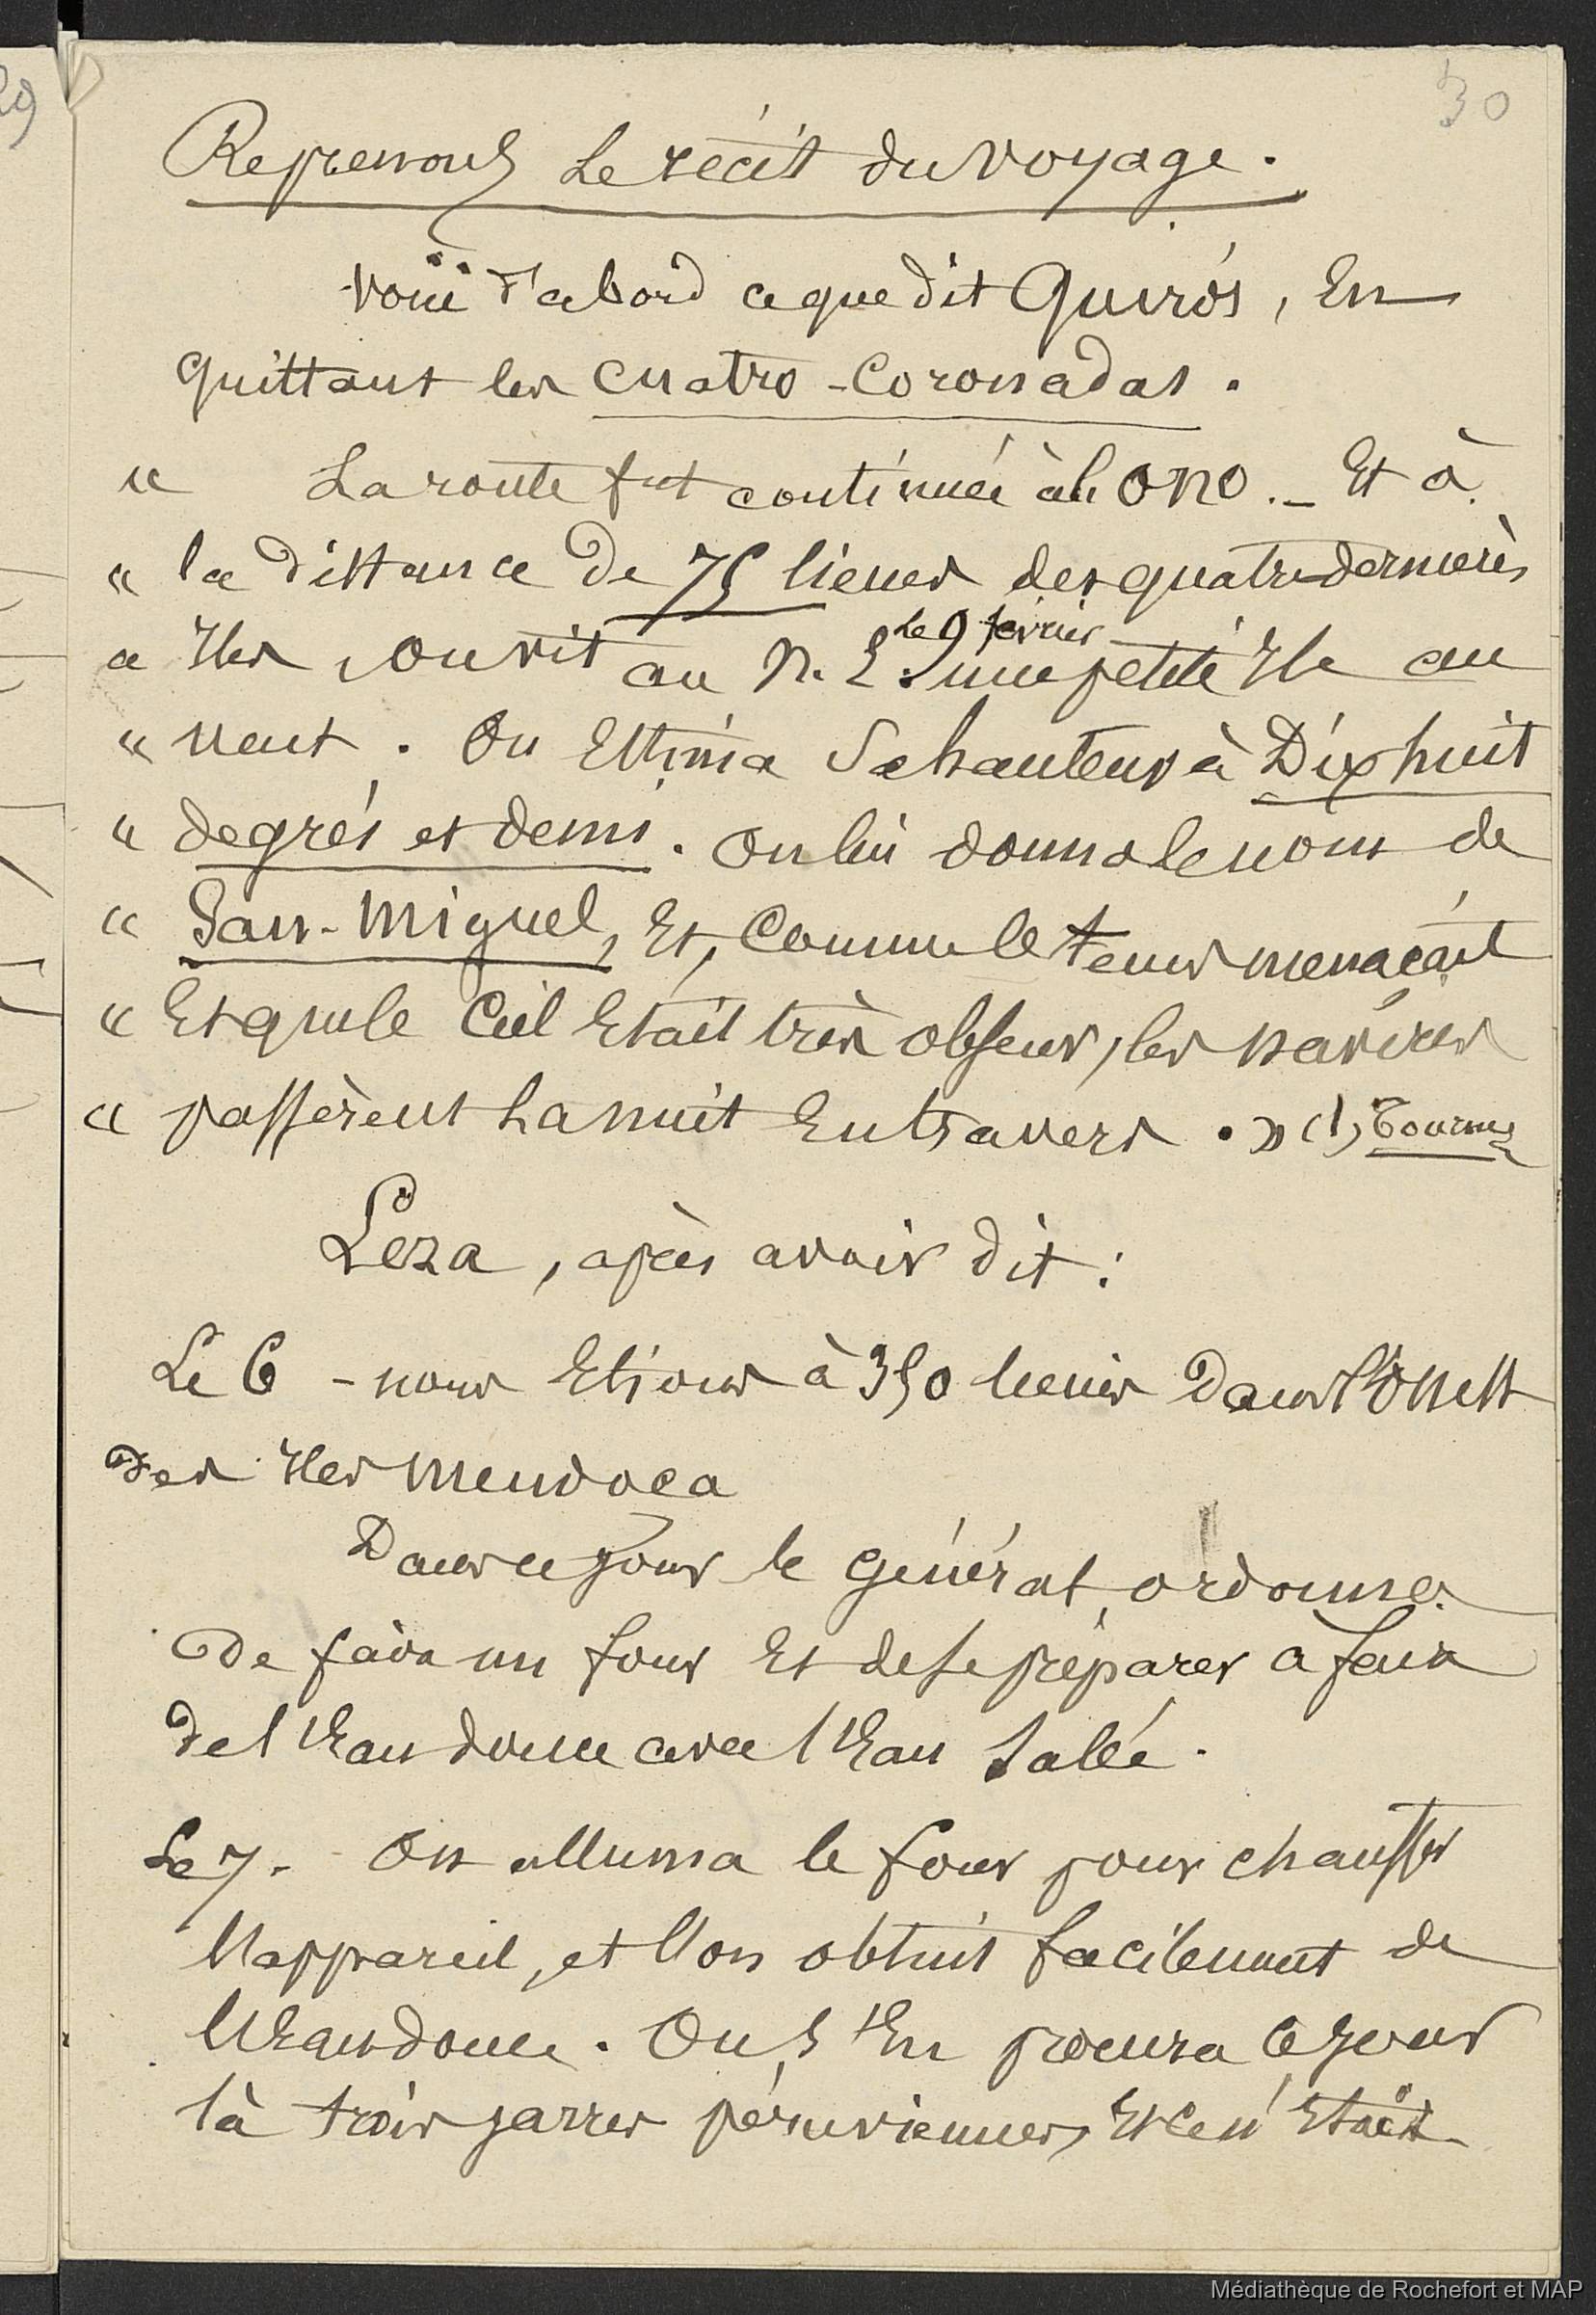 30
Reprenons Le récit du voyage.
Voici d'abord ce que dit Quirós, En
quittant les Cuatro-Coronadas.
" La route fut continuée à l'ONO. _ Et à
" la distance de 75 lieues des quatre dernières
" Iles, on vit au N. E. le 9 février une petite Ile au
" vent. On Estima Sa hauteur à Dix huit
" degrés et demi. On lui donna le nom de
" San-Miguel, Et, Comme le tems menaçait
" Et que le Ciel Etait très obscur, les navires
" passèrent La nuit En travers. » (1)
Leza, après avoir dit :
Le 6 - nous Etions à 350 lieues Dans l'Ouest
Des Iles Mendoça
Dans ce jour le Général ordonna
De faire un four Et de se préparer à faire
De l'Eau douce avec l'Eau Salée.
Le 7. On alluma le four pour chauffer
l'appareil, et l'on obtint facilement de
l'Eau douce. On S'En procura ce jour
là trois jarres péruviennes, Et Ce n'Etait
Médiathèque de Rochefort et MAP